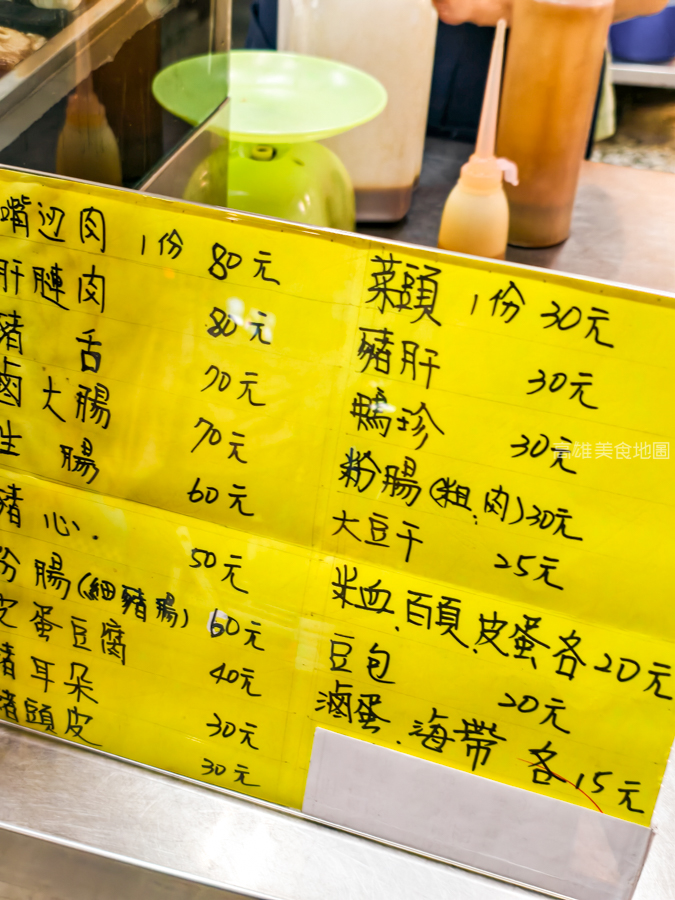 嘴边肉 1份 80元
肝腱肉 80元
豬舌 70元
滷大腸 70元
生腸 60元
豬心. 50元
粉腸(細豬腸) 60元
皮蛋豆腐 40元
豬耳朵 30元
豬頭皮 30元
菜頭 1份 30元
豬肝 30元
鴨珍 30元
粉腸(粗.肉)30元
大豆干 25元
米血、百頁、皮蛋各20元
豆包 20元
滷蛋、海帶 各15元
高雄美食地圖